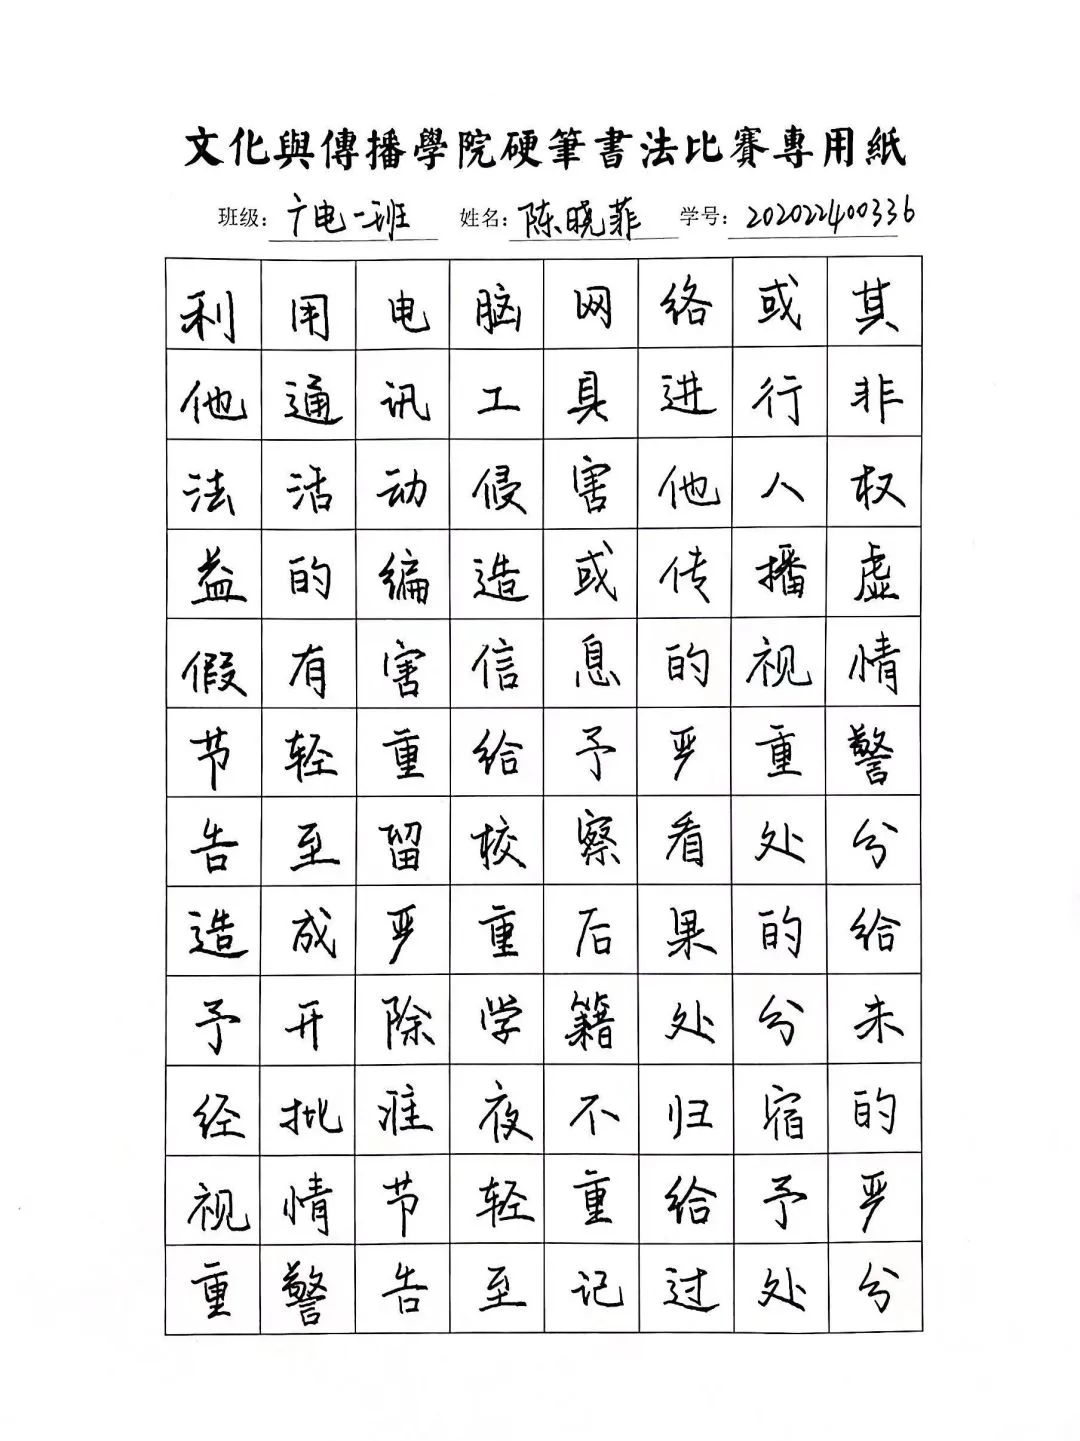 文化與傳播學院硬筆書法比賽專用紙
班级：广电一班 姓名：陈晓菲 学号：202022400336
利用电脑网络或其
他通讯工具进行非
法活动侵害他人权
益的编造或传播虚
假有害信息的视情
节轻重给予严重警
告至留校察看处分
造成严重后果的给
予开除学籍处分未
经批准夜不归宿的
视情节轻重给予严
重警告至记过处分